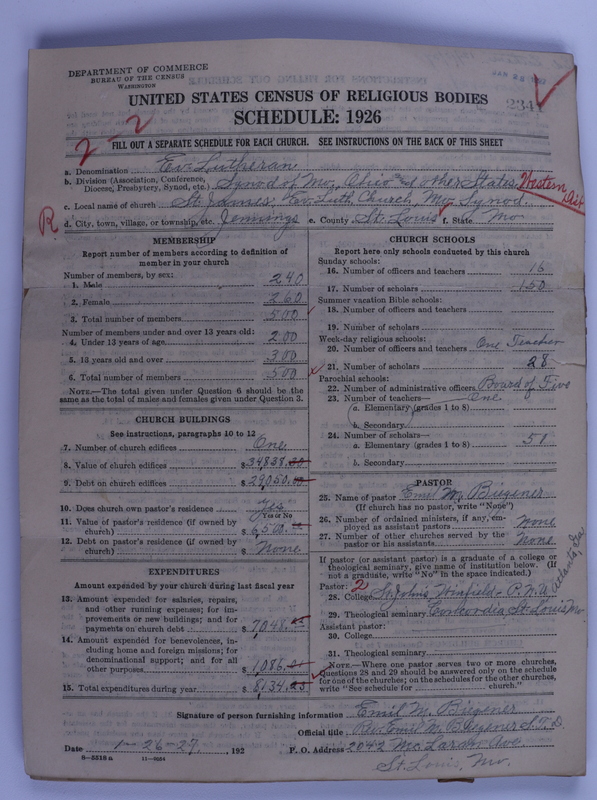 DEPARTMENT OF COMMERCE
BUREAU OF THE CENSUS
WASHINGTON
UNITED STATES CENSUS OF RELIGIOUS BODIES
SCHEDULE: 1926
2-2
FILL OUT A SEPARATE SCHEDULE FOR EACH CHURCH. SEE INSTRUCTIONS ON THE BACK OF THIS SHEET
a. Denomination Ev. Lutheran
b. Division (Association, Conference, Diocese, Presbytery, Synod, etc.) Synod of Mo., Ohio and other States. Western Dist
c. Local name of church St. James, Ev. Luth. Church, Mo. Synod.
R. d. City, town, village, or township, etc. Jennings e. County St. Louis f. State Mo
MEMBERSHIP
Report number of members according to definition of
member in your church
Number of members, by sex:
1. Male 240
2. Female 260
3. Total number of members 500
Number of members under and over 13 years old:
4. Under 13 years of age 200
5. 13 years old and over 300
6. Total number of members 500
NOTE.—The total given under Question 6 should be the
same as the total of males and females given under Question 3.
CHURCH BUILDINGS
See instructions, paragraphs 10 to 12
7. Number of church edifices One
8. Value of church edifices $ 34838.00
9. Debt on church edifices $ 29050.00
10. Does church own pastor's residence? Yes
Yes or No
11. Value of pastor's residence (if owned by
church) $ 6500.00
12. Debt on pastor's residence (if owned by
church) $ None
EXPENDITURES
Amount expended by your church during last fiscal year
13. Amount expended for salaries, repairs,
and other running expenses; for im-
provements or new buildings; and for
payments on church debt $ 7048.
14. Amount expended for benevolences, in-
cluding home and foreign missions; for
denominational support; and for all
other purposes $ 1086.
15. Total expenditures during year $ 8134.25
CHURCH SCHOOLS
Report here only schools conducted by this church
Sunday schools:
16. Number of officers and teachers 16
17. Number of scholars 150
Summer vacation Bible schools:
18. Number of officers and teachers
19. Number of scholars
Week-day religious schools:
20. Number of officers and teachers One Teacher
21. Number of scholars 28
Parochial schools:
22. Number of administrative officers Board of Five
23. Number of teachers— One
a. Elementary (grades 1 to 8)
b. Secondary
24. Number of scholars—
a. Elementary (grades 1 to 8) 51
b. Secondary
PASTOR
25. Name of pastor Emil M. Biegener
(If church has no pastor, write "None")
26. Number of ordained ministers, if any, em-
ployed as assistant pastors None
27. Number of other churches served by the
pastor or his assistants None
If pastor (or assistant pastor) is a graduate of a college or
theological seminary, give name of institution below. (If
not a graduate, write "No" in the space indicated.)
Pastor: 2
28. College St. Johns Winfield - Atlanta, Ga
29. Theological seminary Concordia, St. Louis Mo.
Assistant pastor:
30. College
31. Theological seminary
NOTE.—Where one pastor serves two or more churches,
questions 28 and 29 should be answered only on the schedule
for one of the churches; on the schedules for the other churches,
write "See schedule for church."
Signature of person furnishing information Emil M. Biegener
Official title Rev. Emil M. Biegener S.T.D.
Date 1-26-27, 192 P. O. Address 2042 McLaran Ave.
8-5518 a 11-8654 St. Louis, Mo.